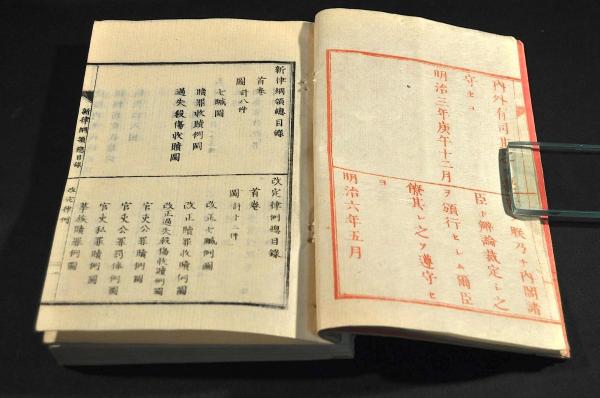 内外有司其
守セヨ
明治三年庚午十二月
朕乃チ内閣諸
臣ト辨論裁定シ之
ヲ頒行セシム爾臣
僚其レ之ヲ遵守セ
ヨ
明治六年五月
新律綱領總目錄
首卷
圖計八件
七贓圖
贖罪收贖例圖
過失殺傷收贖圖
改定律例總目錄
首卷
圖計十二件
改正七贓例圖
改正贖罪收贖例圖
改正過失殺傷收贖例圖
官吏公罪贖例圖
官吏公罪罰俸例圖
官吏私罪贖例圖
華族贖罪例圖
新律綱領總目錄
改定律例